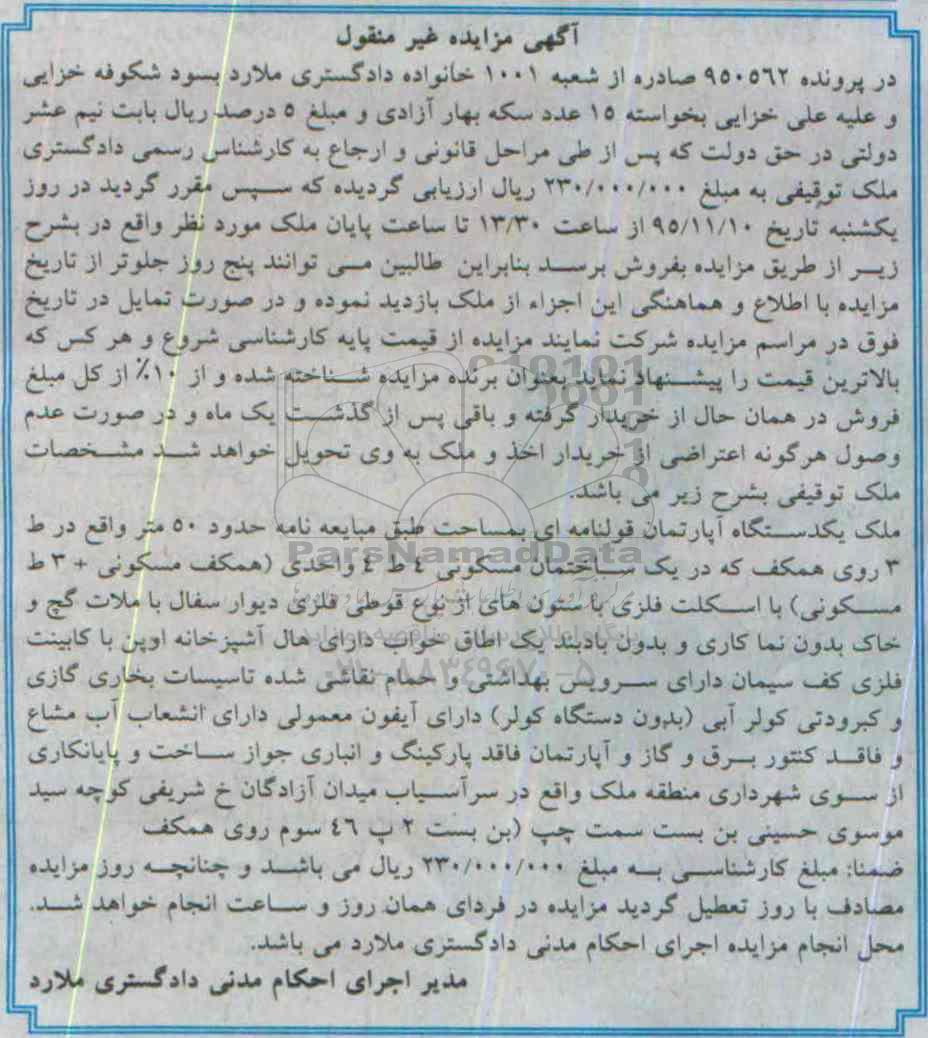 آگهی مزایده غیر منقول
در پرونده ۹۵۰۵۶۲ صادره از شعبه ۱۰۰۱ خانواده دادگستری ملارد بسود شکوفه خزایی
و علیه علی خزایی بخواسته ۱۵ عدد سکه بهار آزادی و مبلغ ۵ درصد ریال بابت نیم عشر
دولتی در حق دولت که پس از طی مراحل قانونی و ارجاع به کارشناس رسمی دادگستری
ملک توقیفی به مبلغ ۲۳۰/۰۰۰/۰۰۰ ریال ارزیابی گردیده که سپس مقرر گردید در روز
یکشنبه تاریخ ۹۵/۱۱/۱۰ از ساعت ۱۳/۳۰ تا ساعت پایان ملک مورد نظر واقع در بشرح
زیر از طریق مزایده بفروش برسد بنابراین طالبین می توانند پنج روز جلوتر از تاریخ
مزایده با اطلاع و هماهنگی این اجراء از ملک بازدید نموده و در صورت تمایل در تاریخ
فوق در مراسم مزایده شرکت نمایند مزایده از قیمت پایه کارشناسی شروع و هر کس که
بالاترین قیمت را پیشنهاد نماید بعنوان برنده مزایده شناخته شده و از ۱۰٪ از کل مبلغ
فروش در همان حال از خریدار گرفته و باقی پس از گذشت یک ماه و در صورت عدم
وصول هرگونه اعتراضی از خریدار اخذ و ملک به وی تحویل خواهد شد مشخصات
ملک توقیفی بشرح زیر می باشد.
ملک یکدستگاه آپارتمان قولنامه ای بمساحت طبق مبایعه نامه حدود ۵۰ متر واقع در ط
ParsNamadData
۳ روی همکف که در یک ساختمان مسکونی ٤ ط ٤ واحدی (همکف مسکونی + ۳ ط
مسکونی) با اسکلت فلزی با ستون های از نوع قوطی فلزی دیوار سفال با ملات گچ و
خاک بدون نما کاری و بدون بادبند یک اطاق خواب دارای هال آشپزخانه اوپن با کابینت
فلزی کف سیمان دارای سرویس بهداشتی و حمام نقاشی شده تاسیسات بخاری گازی
و کبرودتی کولر آبی (بدون دستگاه کولر) دارای آیفون معمولی دارای انشعاب آب مشاع
و فاقد کنتور برق و گاز و آپارتمان فاقد پارکینگ و انباری جواز ساخت و پایانکاری
از سوی شهرداری منطقه ملک واقع در سرآسیاب میدان آزادگان خ شریفی کوچه سید
موسوی حسینی بن بست سمت چپ (بن بست ۲ پ ٤٦ سوم روی همکف
ضمنا: مبلغ کارشناسی به مبلغ ۲۳۰/۰۰۰/۰۰۰ ریال می باشد و چنانچه روز مزایده
مصادف با روز تعطیل گردید مزایده در فردای همان روز و ساعت انجام خواهد شد.
محل انجام مزایده اجرای احکام مدنی دادگستری ملارد می باشد.
مدیر اجرای احکام مدنی دادگستری ملارد